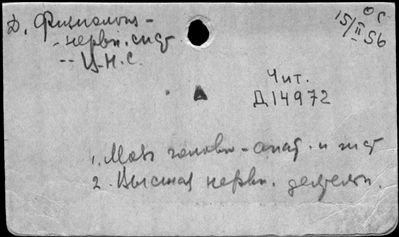 Д. Физиология -
- нервн. сист
-- Ц.Н.С.
15/II 56
Чит.
Д14972
1. Мозг головн - анат. и гист
2. Высшая нервн. деятельн.